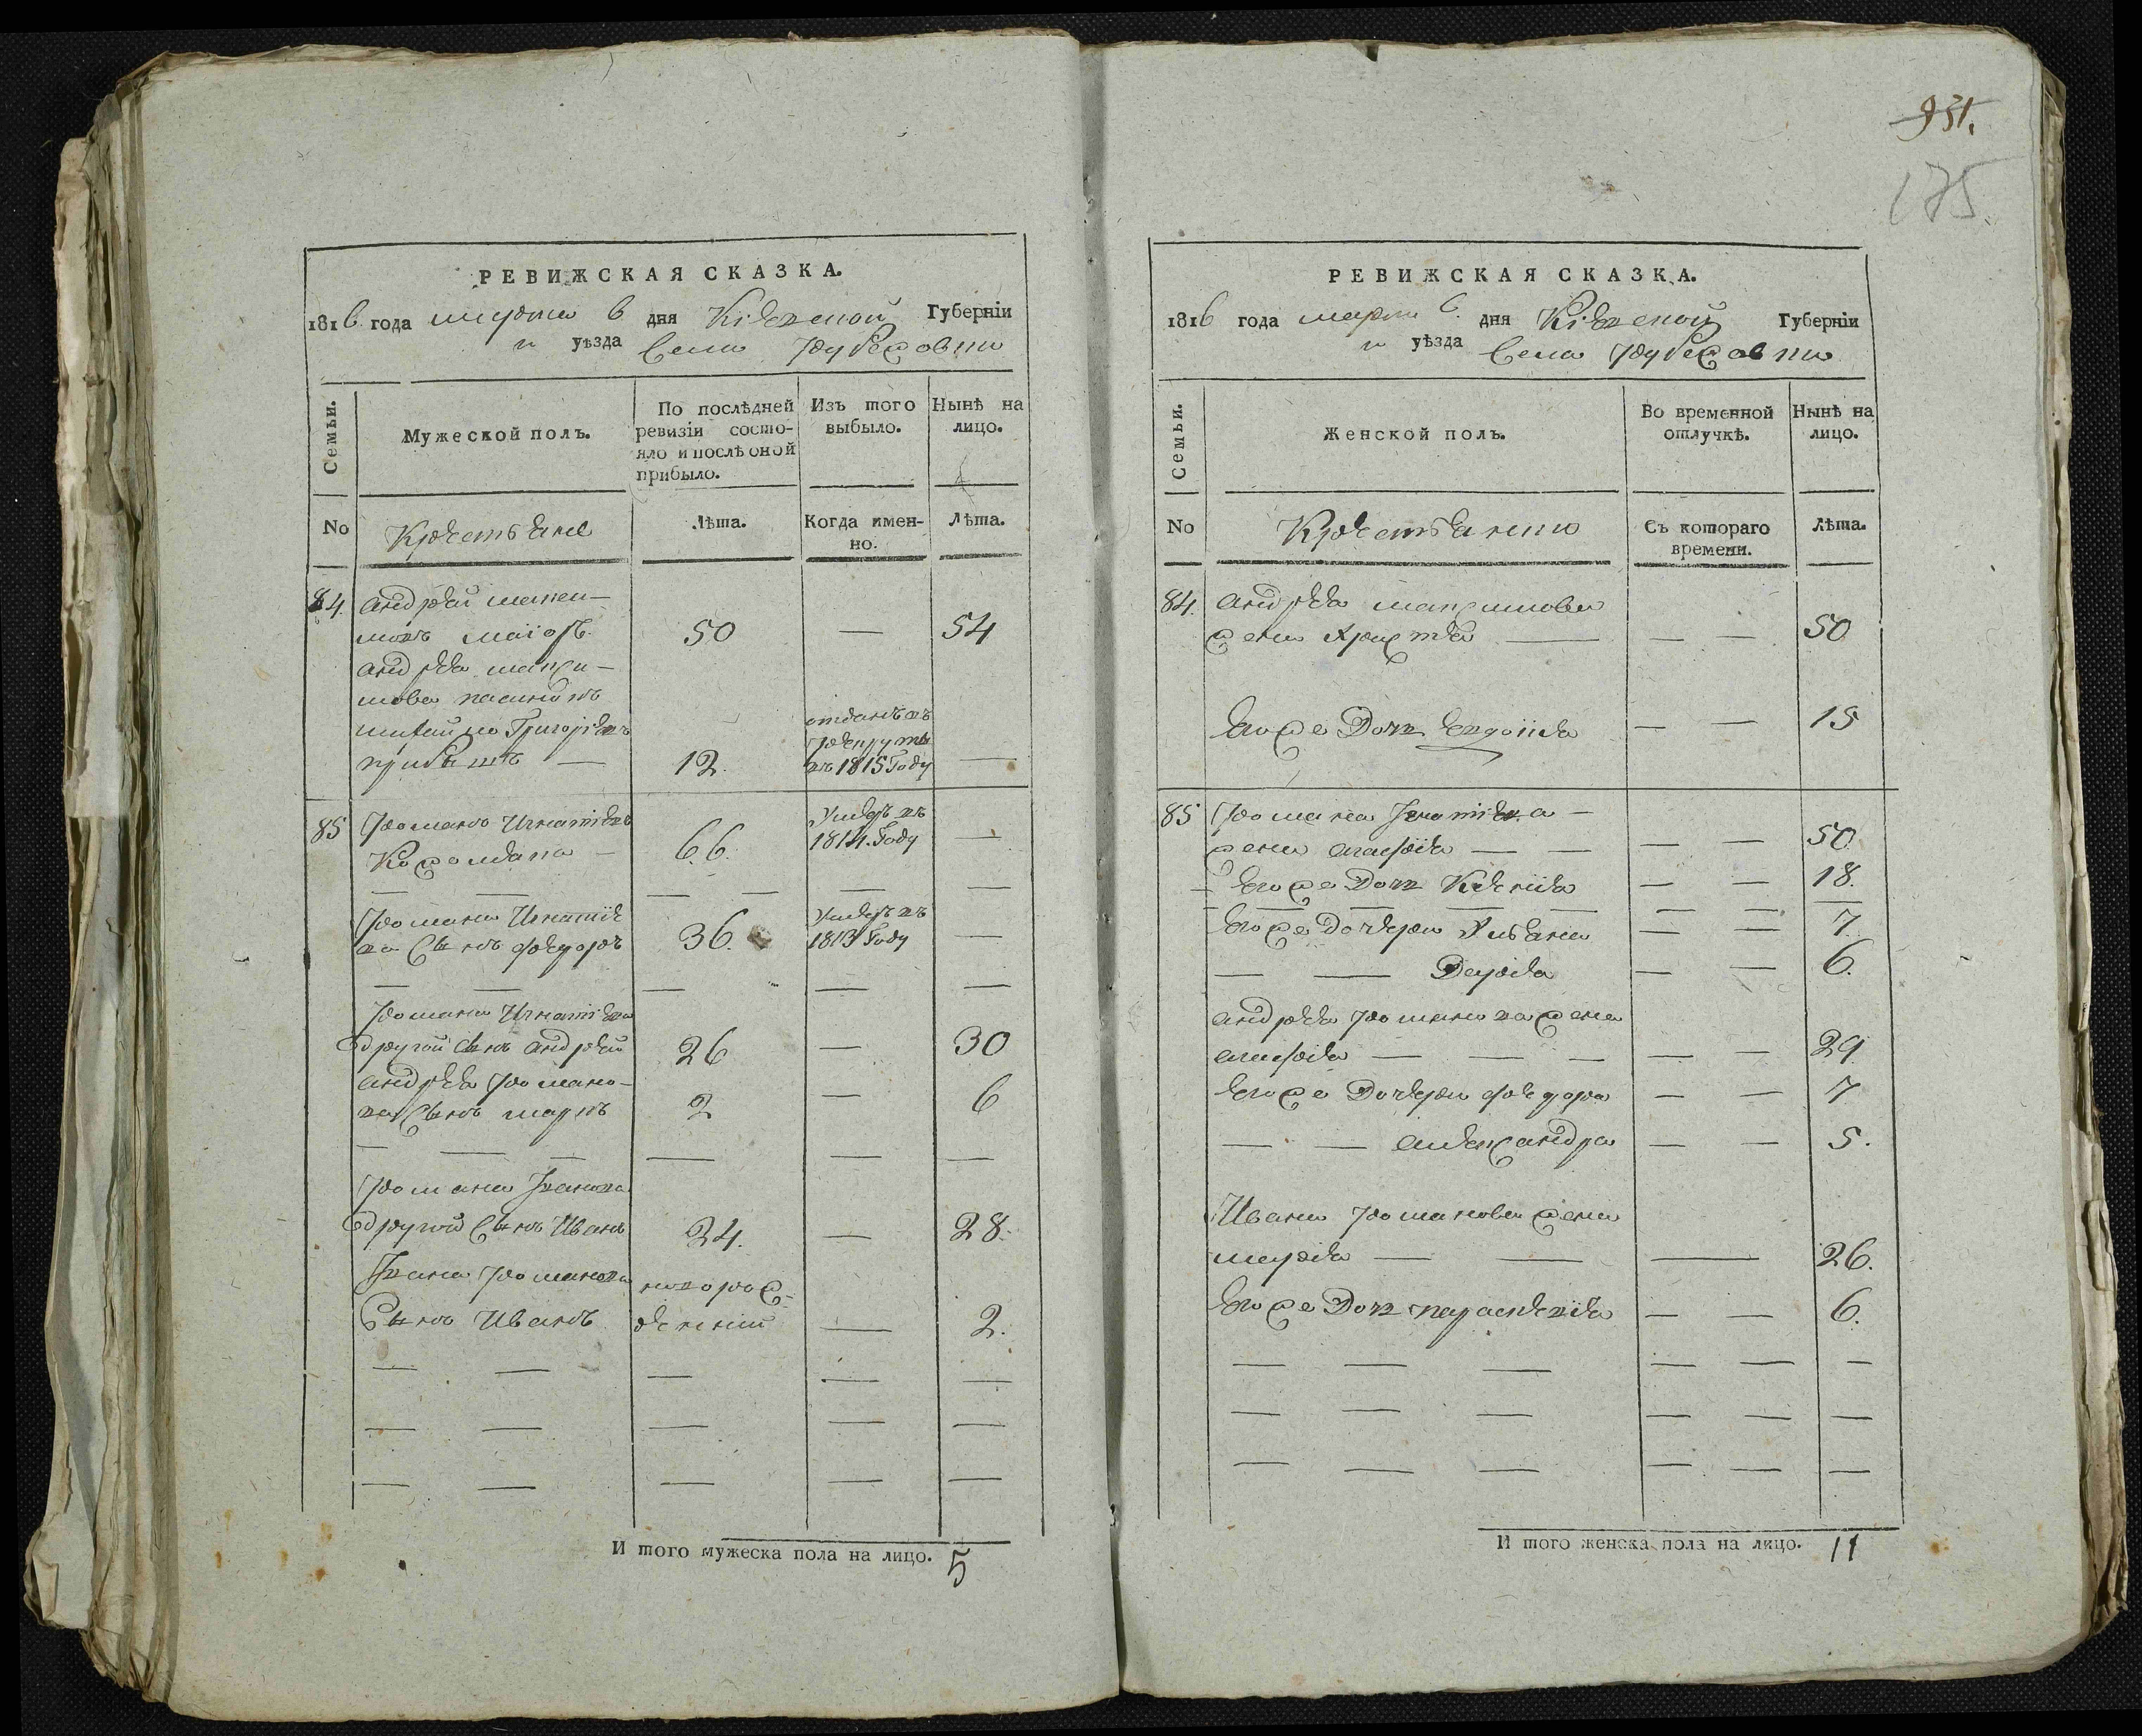 931.
175
РЕВИЖСКАЯ СКАЗКА.
1816 года марта 6 дня Кіевской Губерніи
и уѣзда Села Рубежовки
Семьи.
Мужеской полъ.
По послѣдней ревизіи состояло и послѣ оной прибыло.
Изъ того выбыло.
Нынѣ на лицо.
No
Крестьяне
Лѣта.
Когда именно.
Лѣта.
84. Андрей Макси-
мовъ 50 — 54
Андрея Макси-
мова пасынокъ
Григоріевъ отданъ въ
рекруты
12. въ 1815 Году —
85 Романъ Игнатіевъ Умеръ въ
66. 1814. Году —
Романа Игнатіе Умеръ въ
ва Сынъ Федоръ 36. 1813 Году —
Романа Игнатіева
другой сынъ Андрей 26 — 30
Андрея Романо-
ва Сынъ Маркъ 2 — 6
Романа Іванова
другой Сынъ Иванъ 24. — 28.
Івана Романова новорож-
Сынъ Иванъ денній — 2.
И того мужеска пола на лицо. 5
РЕВИЖСКАЯ СКАЗКА.
1816 года марта 6. дня Кіевской Губерніи
и уѣзда Села Рубежовки
Семьи.
Женской полъ.
Во временной отлучкѣ.
Нынѣ на лицо.
No
Крестьянки
Съ котораго времени.
Лѣта.
84. Андрея Максимова
жена Христя — — — 50
Его же Дочь — — 15
85 Романа Ігнатіева —
жена — — — — 50
Его же Дочь Ксенія — — 18.
Его же дочери Ульяна — — 7
— — Дарія — — 6.
Андрея Романова жена
— — — — — 29
Его же Дочери Федора — — 7
— — Александра — — 5.
Ивана Романова жена
Марія — — — 26.
Его же Дочь Параскевія — — 6.
И того женска пола на лицо. 11